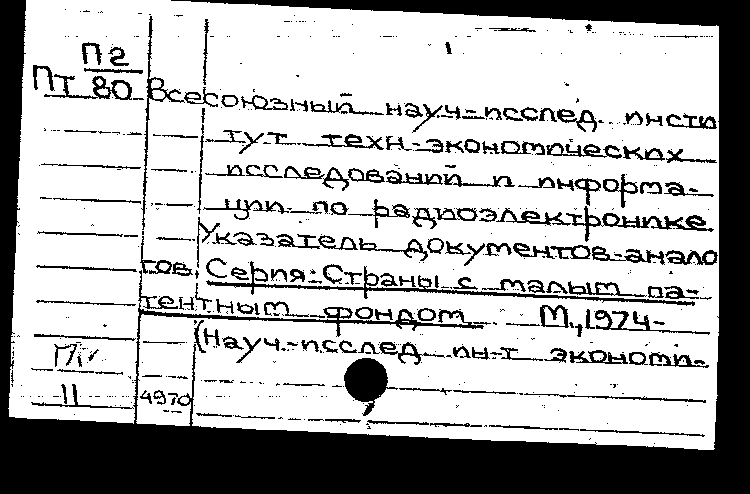 П2
Пт 80 Всесоюзный науч-исслед. инсти
тут техн-экономических
исследований и информа-
ции по радиоэлектронике.
Указатель документов-анало
гов. Серия: Страны с малым па-
тентным фондом М., 1974-
(Науч.-исслед. ин-т экономи-
II 4970